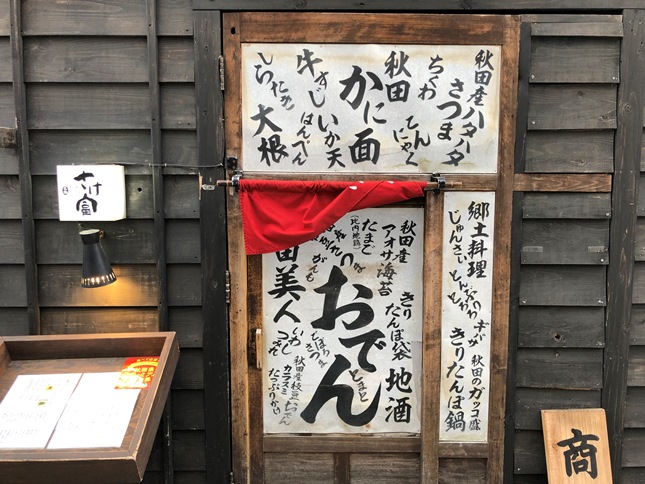 秋田産ハタハタ
さつま
ちくわ
秋田
こんにゃく
かに面
牛すじ
いか天
はんぺん
しらたき
大根
さけ富
秋田産
アオサ海苔
たまご
(比内地鶏)
きりたんぽ袋
地酒
おでん
とまと
田美人
いわし
つみれ
秋田産枝豆おでん
カラスミ
たっぷりかけ
郷土料理
じゅんさい
とんぶり
ギバサ
秋田のガッコ盛
きりたんぽ鍋
商